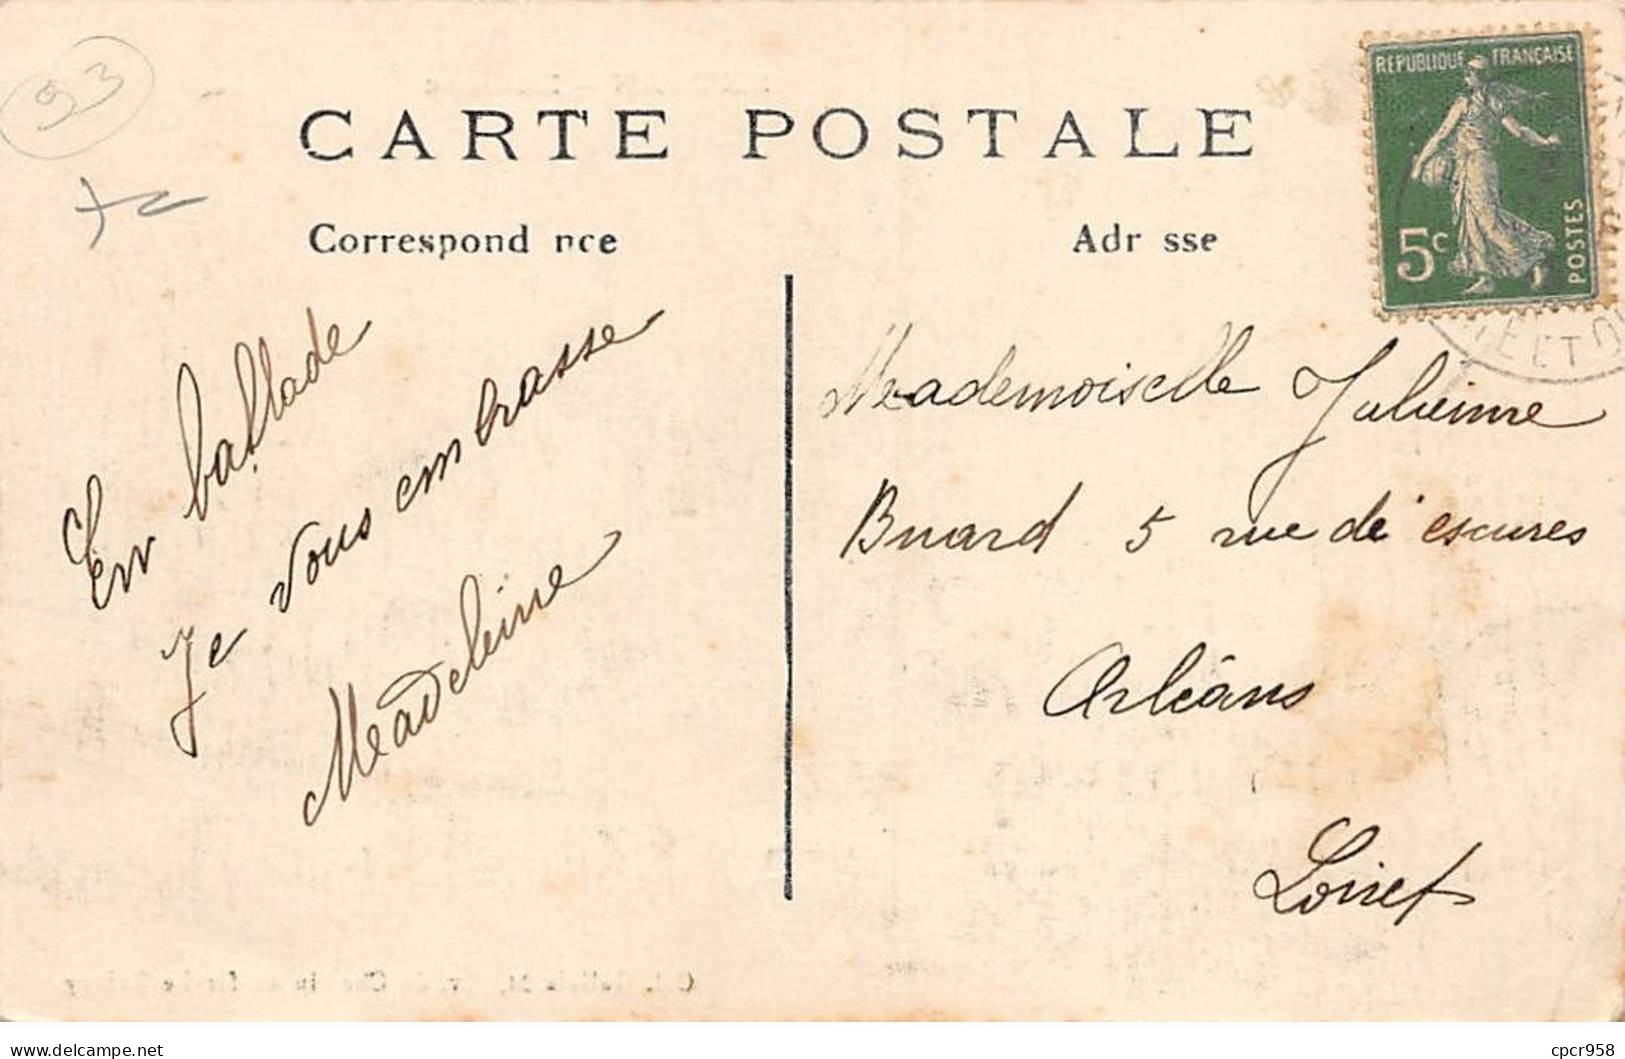 93
CARTE POSTALE
REPUBLIQUE FRANÇAISE
5c
POSTES
Correspond nce
Adr sse
En ballade
Je vous embrasse
Madeleine
Mademoiselle Julienne
Buard 5 rue de escures
Orléans
Loiret
delcampe.net
cpcr958